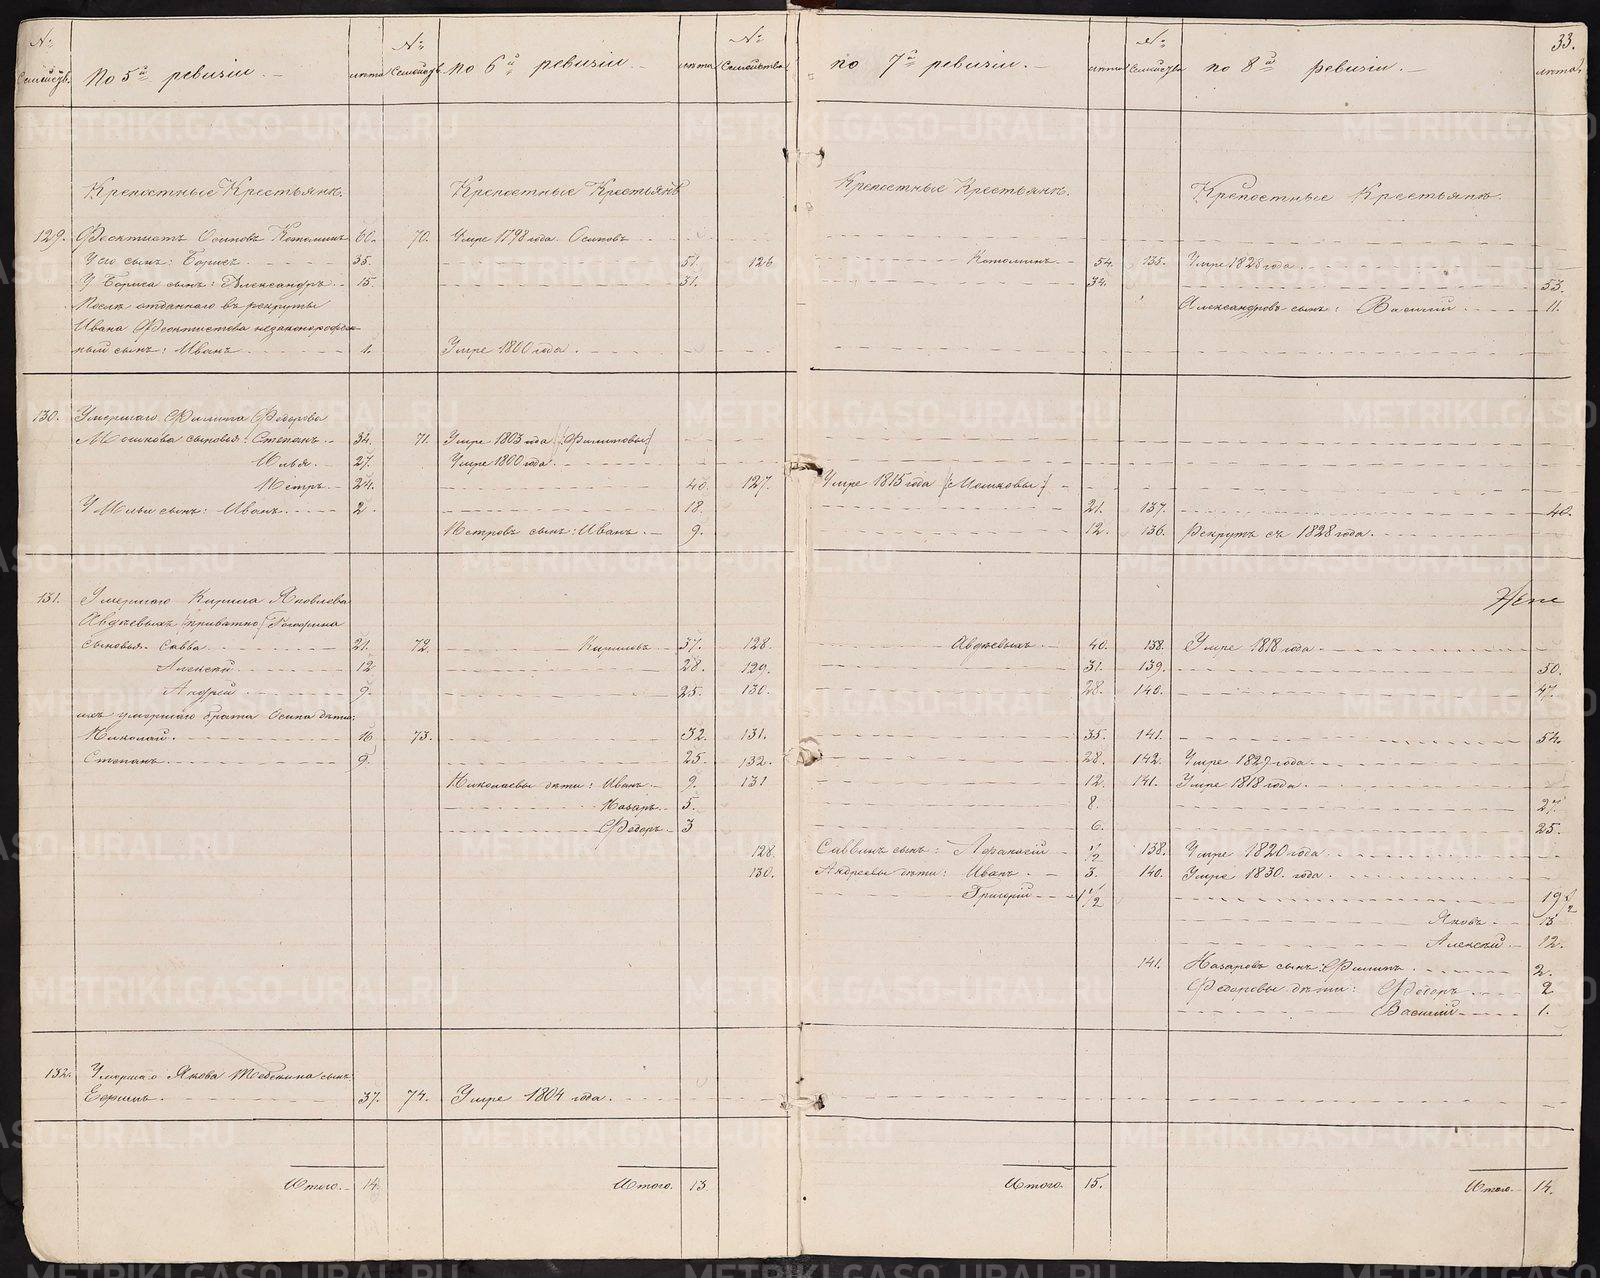 33.
№ семействъ. По 5й ревизіи. — лѣта № семейств. по 6й ревизіи — лѣта № семейства по 7й ревизіи. — лѣта № семейства по 8й ревизіи. — лѣта
Крепостные Крестьяне. Крепостные Крестьянѣ Крепостные Крестьянѣ. Крепостные Крестьянѣ.
129. Феоктистъ Осиповъ Котоминъ 60. 70. Умре 1798 года. Осиповъ
У его сынъ: Борисъ. 35. 51. 126 Котоминъ. 54. 135. Умре 1828 года.
У Бориса сынъ: Александръ. 15. 31. 34. 53.
Послѣ отданнаго въ рекруты Александровъ сынъ: Василий 11.
Ивана Феоктистова незаконорожден-
ный сынъ: Иванъ 1. Умре 1800 года.
130. Умершаго Филипа Федорова
Мошкова сыновья: Степанъ. 34. 71. Умре 1803 года /:Филиповы:/
Илья. 27. Умре 1800 года.
Петръ. 24. 40. 127. Умре 1815 года /:Мошковы:/
У Ильи сынъ: Иванъ. 2 18. 21. 137. 40.
Петровъ сынъ: Иванъ. 9. 12. 136. Рекрутъ съ 1828 года.
131. Умершаго Кирила Яковлева
Авдѣевыхъ /приватно/
сыновья: Савва 21. 72. Кириловъ 37. 128. Авдѣевыхъ. 40. 138. Умре 1818 года.
Алексѣй. 12 28. 129. 31. 139. 50.
Андрей. 9. 25. 130. 28. 140. 47.
ихъ умершаго брата Осипа дѣти:
Николай. 16 73. 32. 131. 35. 141. 54.
Степанъ. 9. 25. 132. 28. 142. Умре 1829 года.
Николаевы дѣти: Иванъ. 9. 131 12. 141. Умре 1818 года.
Назаръ. 5. 8. 27.
Федоръ. 3 6. 25.
128. Саввинъ сынъ: Афанасій 1/2 138. Умре 1820 года.
130. Андреевы дѣти: Иванъ. 3. 140. Умре 1830. года.
Григорій 1 1/2 19 1/2
Яковъ. 13
Алексѣй. 12.
141. Назаровъ сынъ: Филипъ 2.
Федоровы дѣти: Федоръ 2
Василій 1.
132. Умершаго Якова сынъ
Ефимъ. 37. 74. Умре 1804 года.
Итого. 14. Итого. 13 Итого. 15. Итого. 14.
METRIKI.GASO-URAL.RU